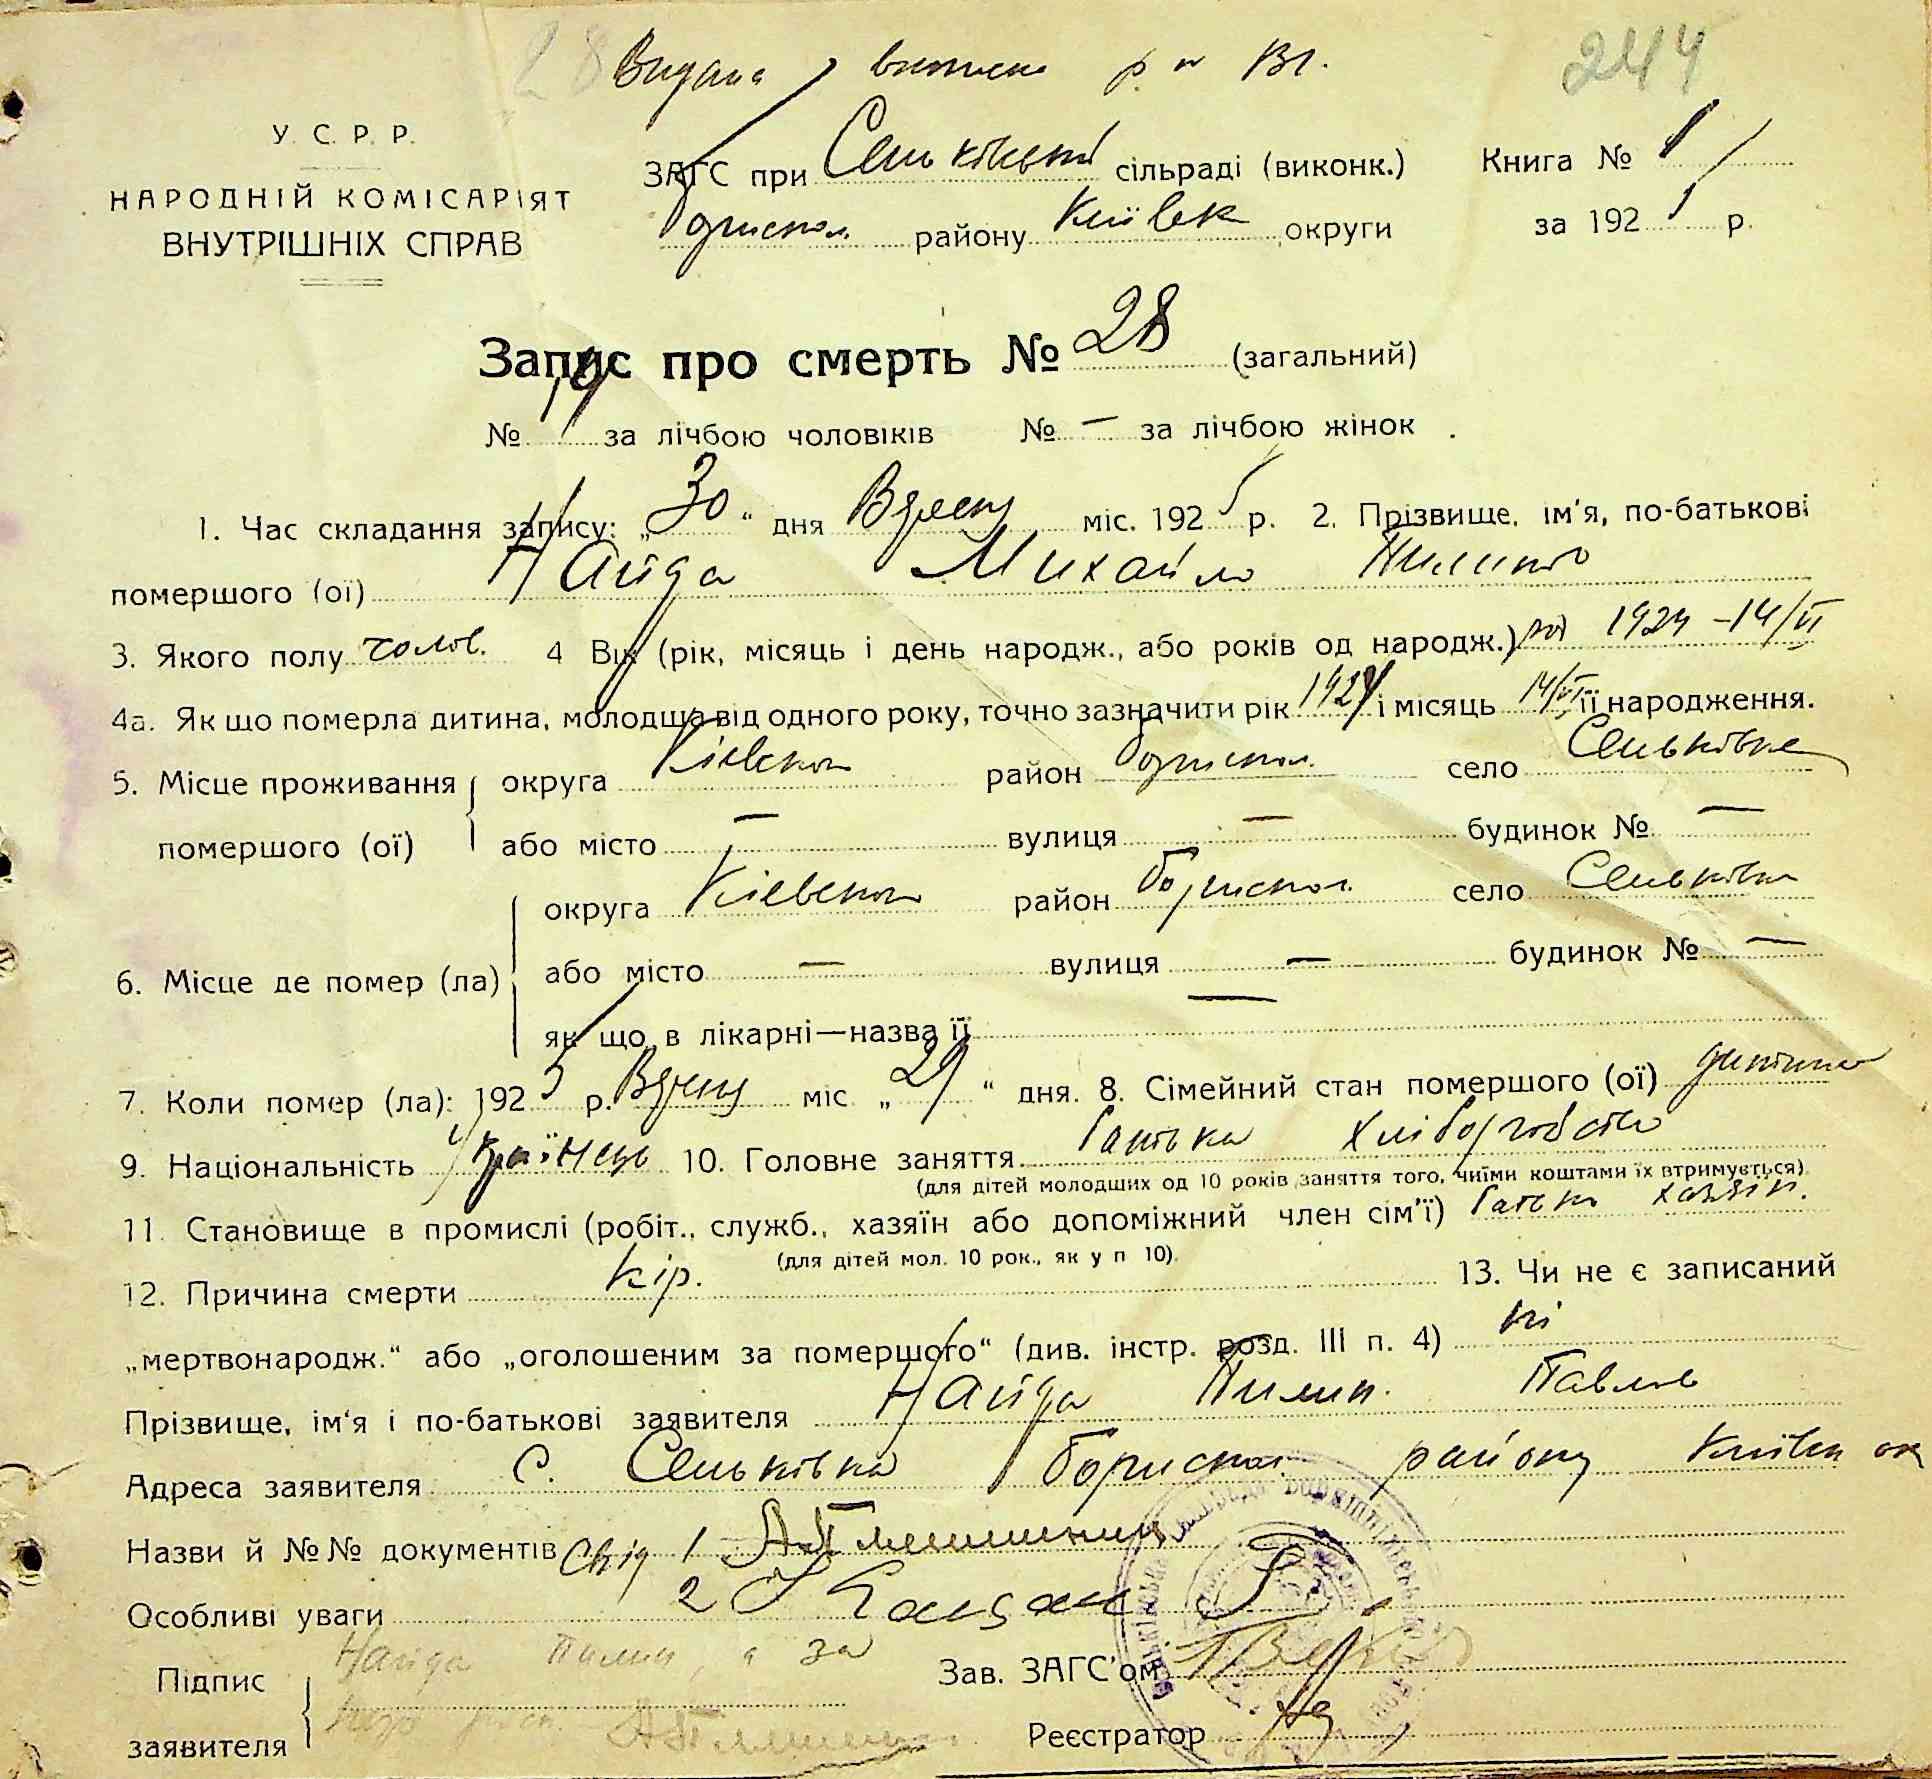 28 Видана виписка
244
У. С. Р. Р.
НАРОДНІЙ КОМІСАРІЯТ
ВНУТРІШНІХ СПРАВ
ЗАГС при Сеньківській сільраді (виконк.)
Бориспол. району Київск округи
Книга № 1
за 192 р.
Запис про смерть № 28 (загальний)
№ 19 за лічбою чоловіків № — за лічбою жінок
1. Час складання запису: „30“ дня Вересн міс. 1925 р. 2. Прізвище, ім'я, по-батькові
помершого (ої) Найда Михайло Пилипов
3. Якого полу чолов. 4 Вік (рік, місяць і день народж., або років од народж.) 1924 – 14/VI
4а. Як що померла дитина, молодша від одного року, точно зазначити рік 1924 і місяць 14/VI її народження.
5. Місце проживання помершого (ої)
округа Кієвская район Бориспол. село Сеньковка
або місто — вулиця — будинок № —
6. Місце де помер (ла)
округа Кієвская район Бориспол. село Сеньковка
або місто — вулиця — будинок № —
як що в лікарні—назва її —
7. Коли помер (ла): 1925 р. Вересн міс „29“ дня. 8. Сімейний стан помершого (ої) дитина
9. Національність Українець 10. Головне заняття Батька хліборобство
(для дітей молодших од 10 років заняття того, чиїми коштами їх втримується)
11. Становище в промислі (робіт., служб., хазяїн або допоміжний член сім'ї) Батько хазяїн.
(для дітей мол. 10 рок., як у п 10).
12. Причина смерти Кір. 13. Чи не є записаний
„мертвонародж.“ або „оголошеним за помершого“ (див. інстр. розд. III п. 4) ні
Прізвище, ім'я і по-батькові заявителя Найда Пилип. Павлов
Адреса заявителя с. Сеньковка Бориспол. району Київск ок
Назви й №№ документів Свід 1
Особливі уваги 2
Підпис заявителя Найда Пилип, а за
Зав. ЗАГС'ом
Реєстратор